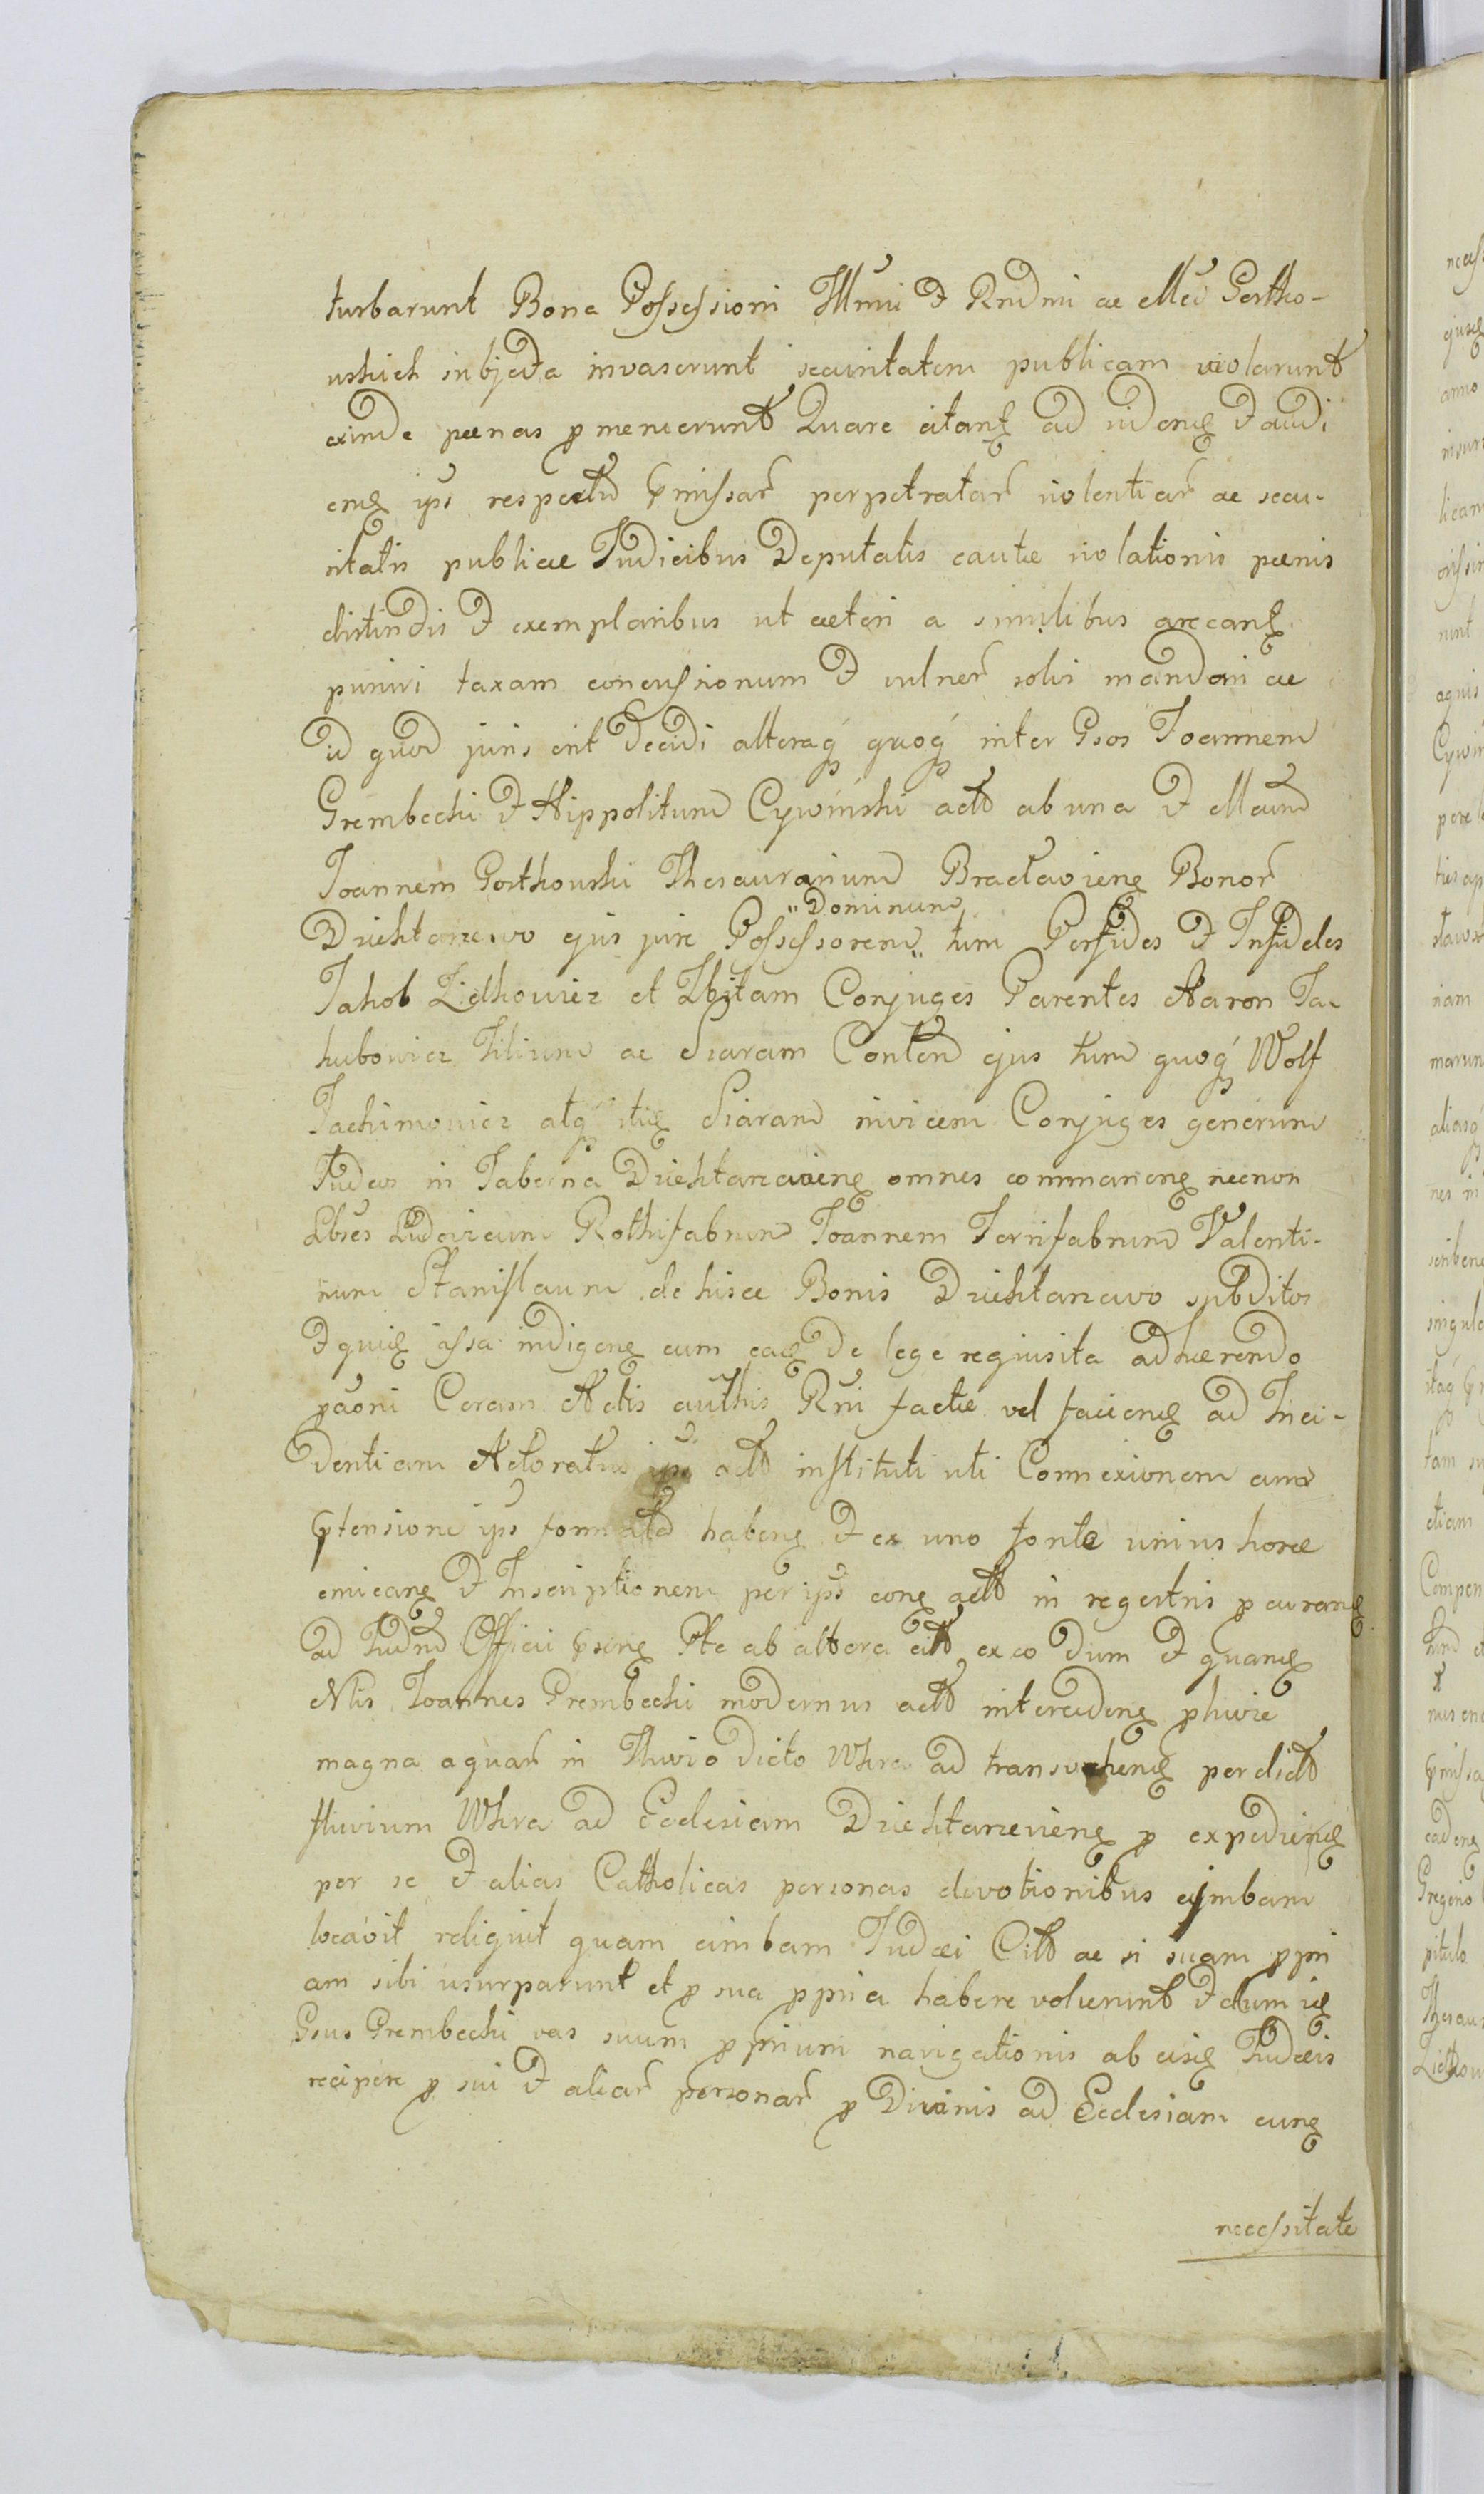 turbarunt Bona Possessioni Illmi et Rndmi ac Mci Gortko-
wskich subjecta invaserunt securitatem publicam violarunt
exinde pænas p meruerunt Quare citant ad videnq et audi
enq ips respectu pmissar perpetratar violentiar ac secu-
ritatis publicæ Judicibus Deputatis cautæ violationis pænis
distindis et exemplaribus ut cæteri a similibus arceant
puniri taxam concussionum et vulner solvi mandari ac
id quod juris erit decidi alteraq quoq inter Gsos Joannem
Grembecki et Hippolitum Cywinski actt ab una et Mcum
Joannem Gortkowski Thesaurarium Braclaviens Bonor
"Dominum
Druchtarzewo ejus jure Possessorem" tum Perfidos et Infideles
Jakob Zielkowicz et Zbitam Conjuges Parentes Aaron Ja-
kubowicz Filium ac Siaram Conten ejus tum quoq Wolf
Jachimowicz atq itiq Siaram invicem Conjuges generum
Judæos in Taberna Druchtarzeviens omnes commanenq necnon
Lbses Ludovicum Rothifabrum Joannem Ferrifabrum Valenti-
num Stanislaum de hisce Bonis Druchtarzewo subditos
et quiq issa indigenq cum eaq de lege requisita adhærendo
paoni Coram Actis authis Rni factæ vel faciendq ad Inci-
dentiam Actoratus ips actt instituti uti Connexionem cum
ptensione ips format habenq et ex uno fonte unius horæ
emicanq et Inscriptionem per ips conq actt in regestris p curanq
ad Judm Officii psenq Pte ab altera citt ex eo dum et quanq
Nlis Joannes Grembecki modernus actt intercedenq pluvie
magna aquar in Fluvio dicto Wkra ad transvehenq per dict
fluvium Wkra ad Ecclesiam Druchtarzeviens p expedienq
per se et alias Catholicas personas devotionibus cymbam
locavit reliquit quam cimbam Judæi Citt ac si suam p pri
am sibi usurparunt et p sua ppria habere voluerunt et dum iq
Gsus Grembecki vas suum p prium navigationis ab eisq Judæis
recipere p sui et aliar personar p Divinis ad Ecclesiam eunq
necessitate